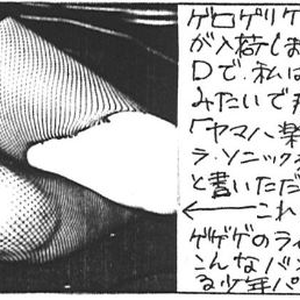 ゲロゲリゲ
が入荷しま
Dで、私は
みたいでオ
「ヤマハ楽
ラ・ソニック
と書いただ
←これ
ゲゲゲのライ
こんなバン
る少年パ